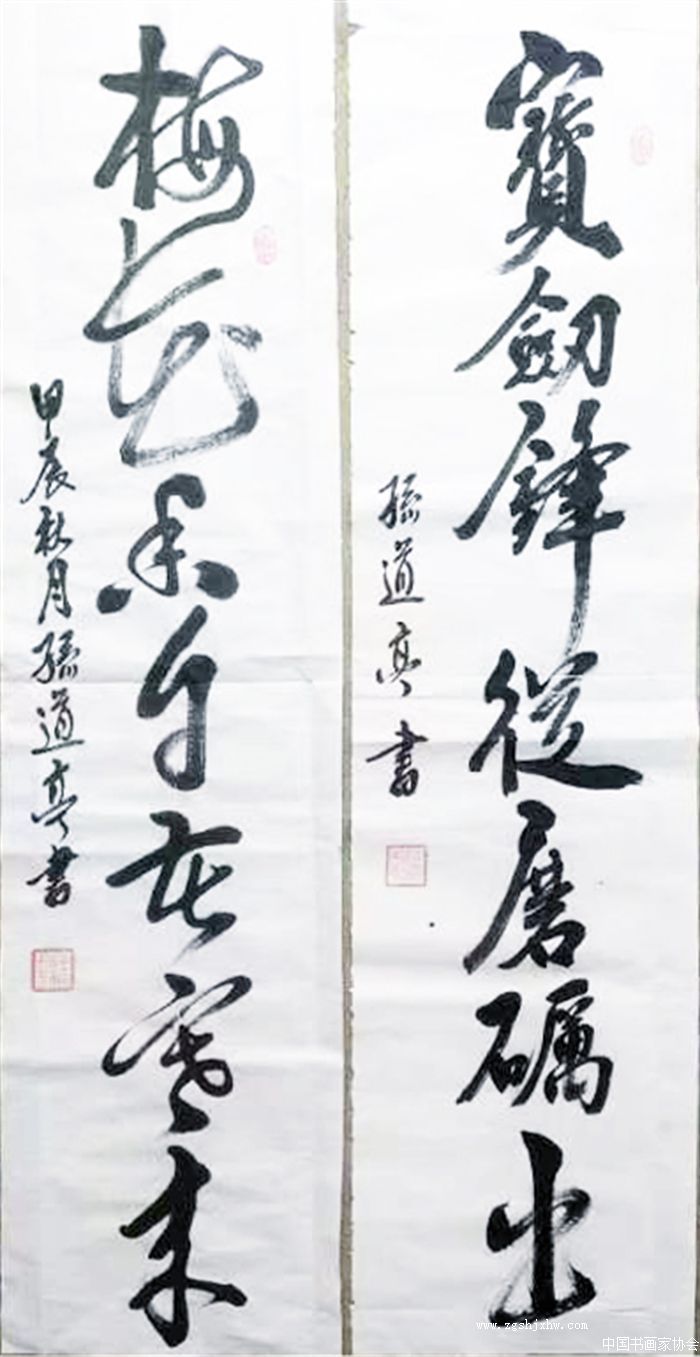 寶劒鋒從磨礪出
孫道亭書
梅花香自苦寒来
甲辰秋月孫道亭書
www.zgshjxhw.com
中国书画家协会